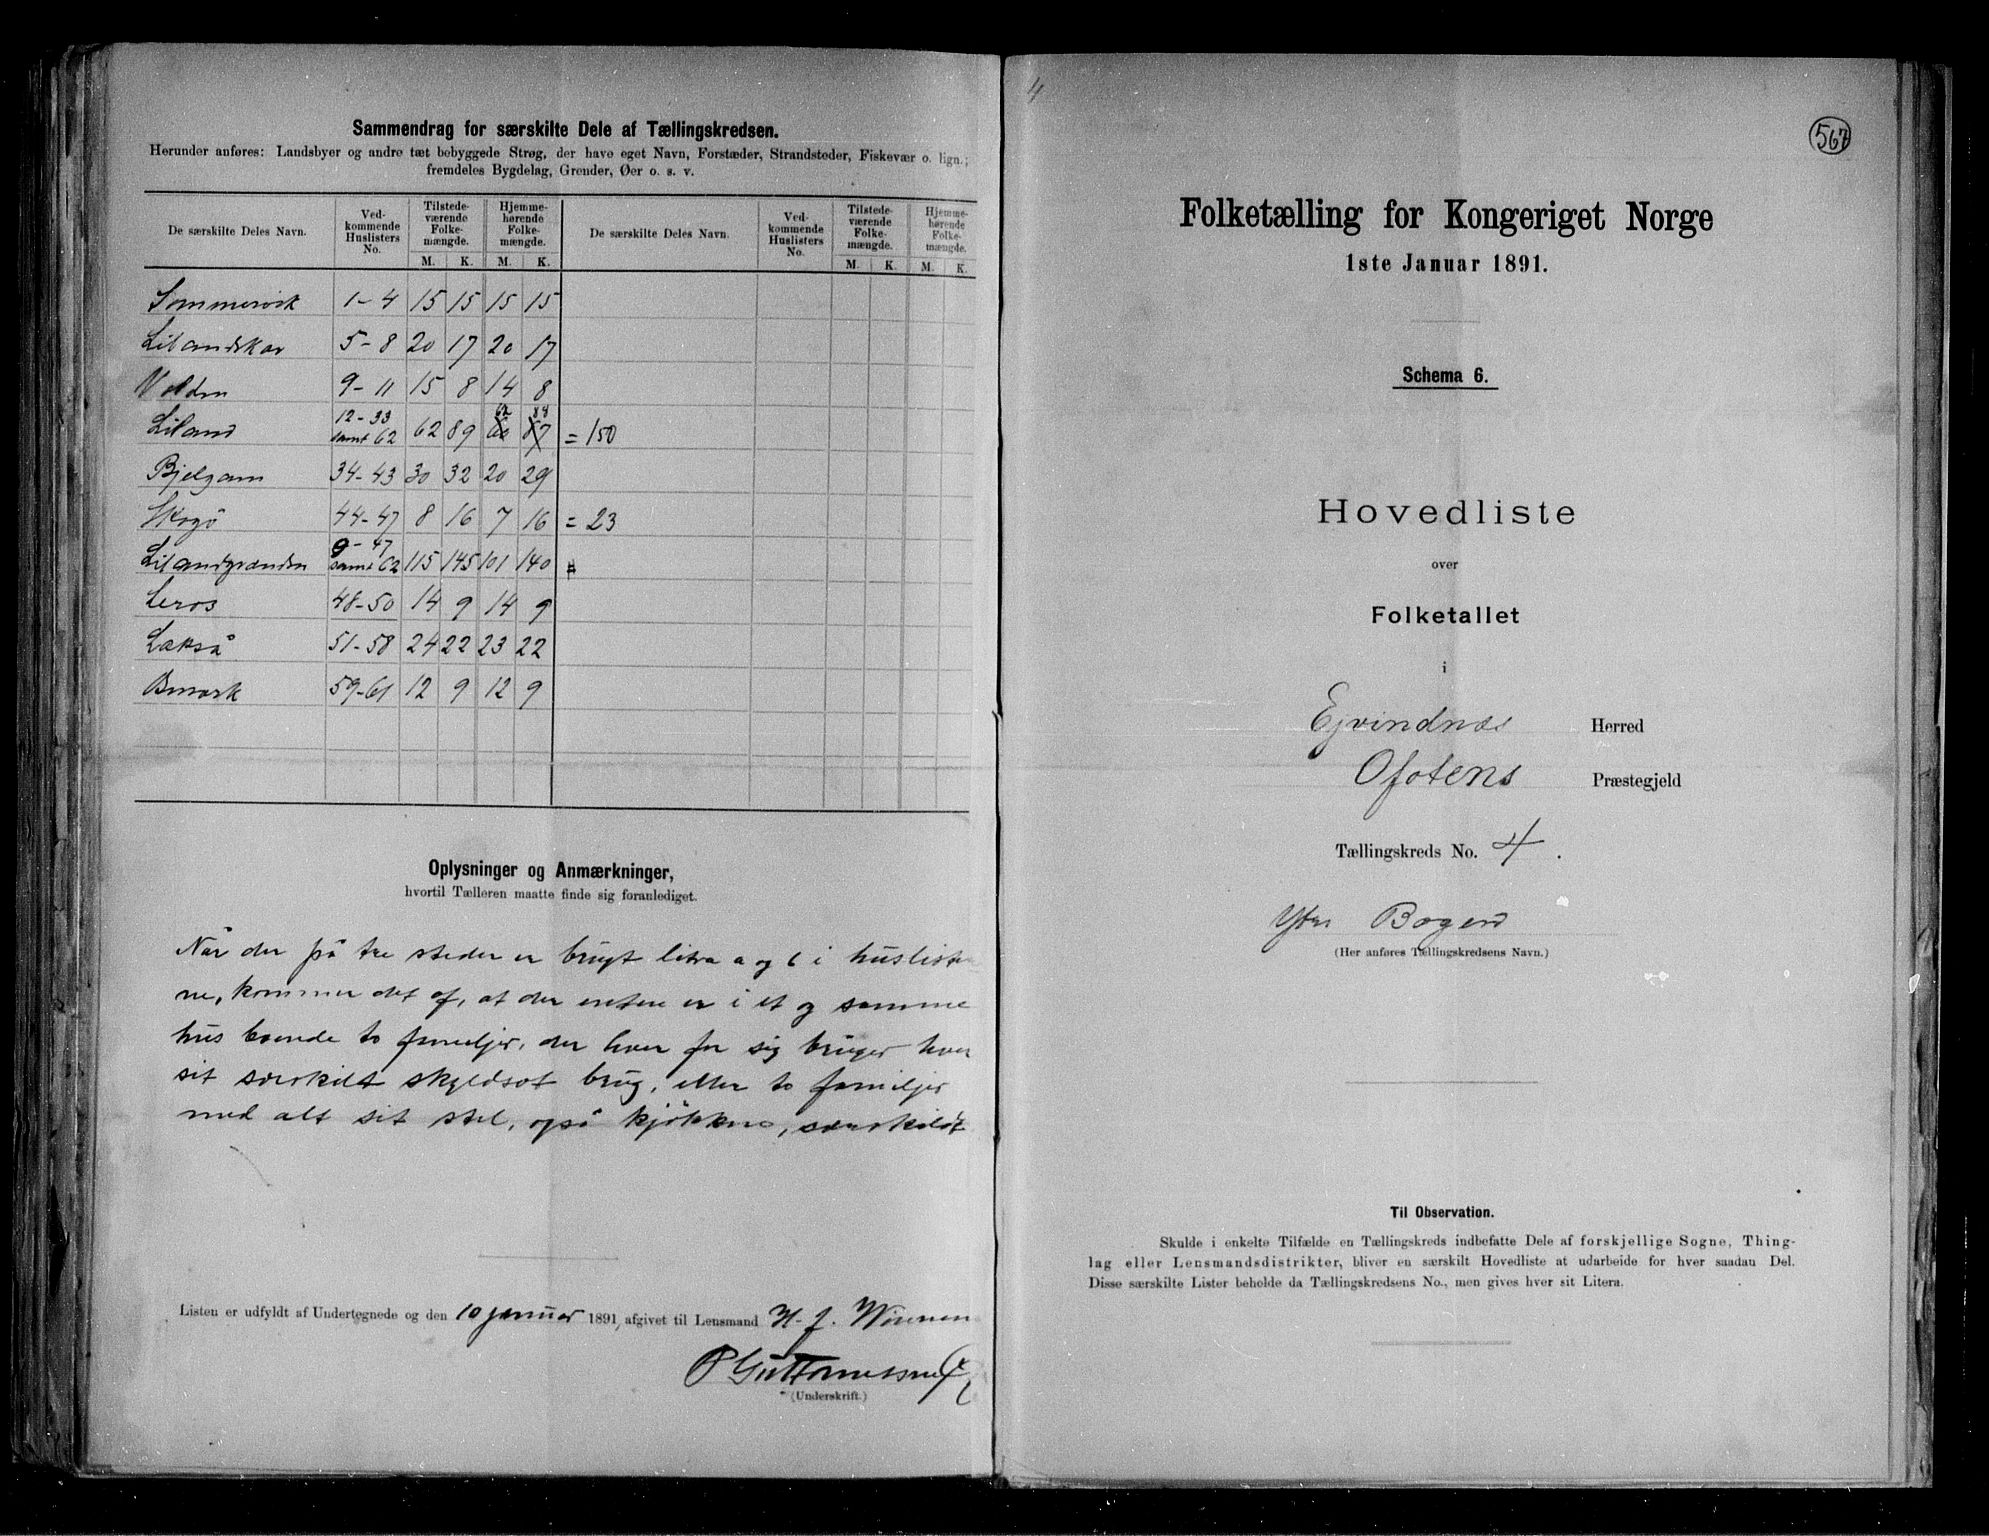 Sammendrag for særskilte Dele af Tællingskredsen.
Herunder anføres: Landsbyer og andre tæt bebyggede Strøg, der have eget Navn, Forstæder, Strandsteder, Fiskevær o. lign.;
fremdeles Bygdelag, Grender, Øer o. s. v.
De særskilte Deles Navn. Ved-kommende Huslisters No. Tilstede-værende Folke-mængde. Hjemme-hørende Folke-mængde. De særskilte Deles Navn. Ved-kommende Huslisters No. Tilstede-værende Folke-mængde. Hjemme-hørende Folke-mængde.
M. K. M. K. M. K. M. K.
Sommervik 1-4 15 15 15 15
Lilandskar 5-8 20 17 20 17
Volden 9-11 15 8 14 8
12-33 62 88
Liland samt 62 62 89 60 87 = 150
Bjelgam 34-43 30 32 20 29
Skogö 44-47 8 16 7 16 = 23
9-47
Lilandgranden samt 62 115 145 101 140
Leros 48-50 14 9 14 9
Lakså 51-58 24 22 23 22
Bmark 59-61 12 9 12 9
Oplysninger og Anmærkninger,
hvortil Tælleren maatte finde sig foranlediget.
Når der på tre steder er brugt litra a og b i huslister
ne, kommer det af, at der enten er i et og samme
hus boende to familjer, der hver for sig bruger hver
sit særskilt skyldsat brug, eller to familjer
med alt sit stel, også kjökken, særskildt
Listen er udfyldt af Undertegnede og den 10 januar 1891, afgivet til Lensmand H. J.
P Guttormessen
(Underskrift.)
4
567
Folketælling for Kongeriget Norge
1ste Januar 1891.
Schema 6.
Hovedliste
over
Folketallet
i
Ejvindnæs Herred
Ofotens Præstegjeld
Tællingskreds No. 4.
Ytre Bogen
(Her anføres Tællingskredsens Navn.)
Til Observation.
Skulde i enkelte Tilfælde en Tællingskreds indbefatte Dele af forskjellige Sogne, Thing-
lag eller Lensmandsdistrikter, bliver en særskilt Hovedliste at udarbeide for hver saadan Del.
Disse særskilte Lister beholde da Tællingskredsens No., men gives hver sit Litera.